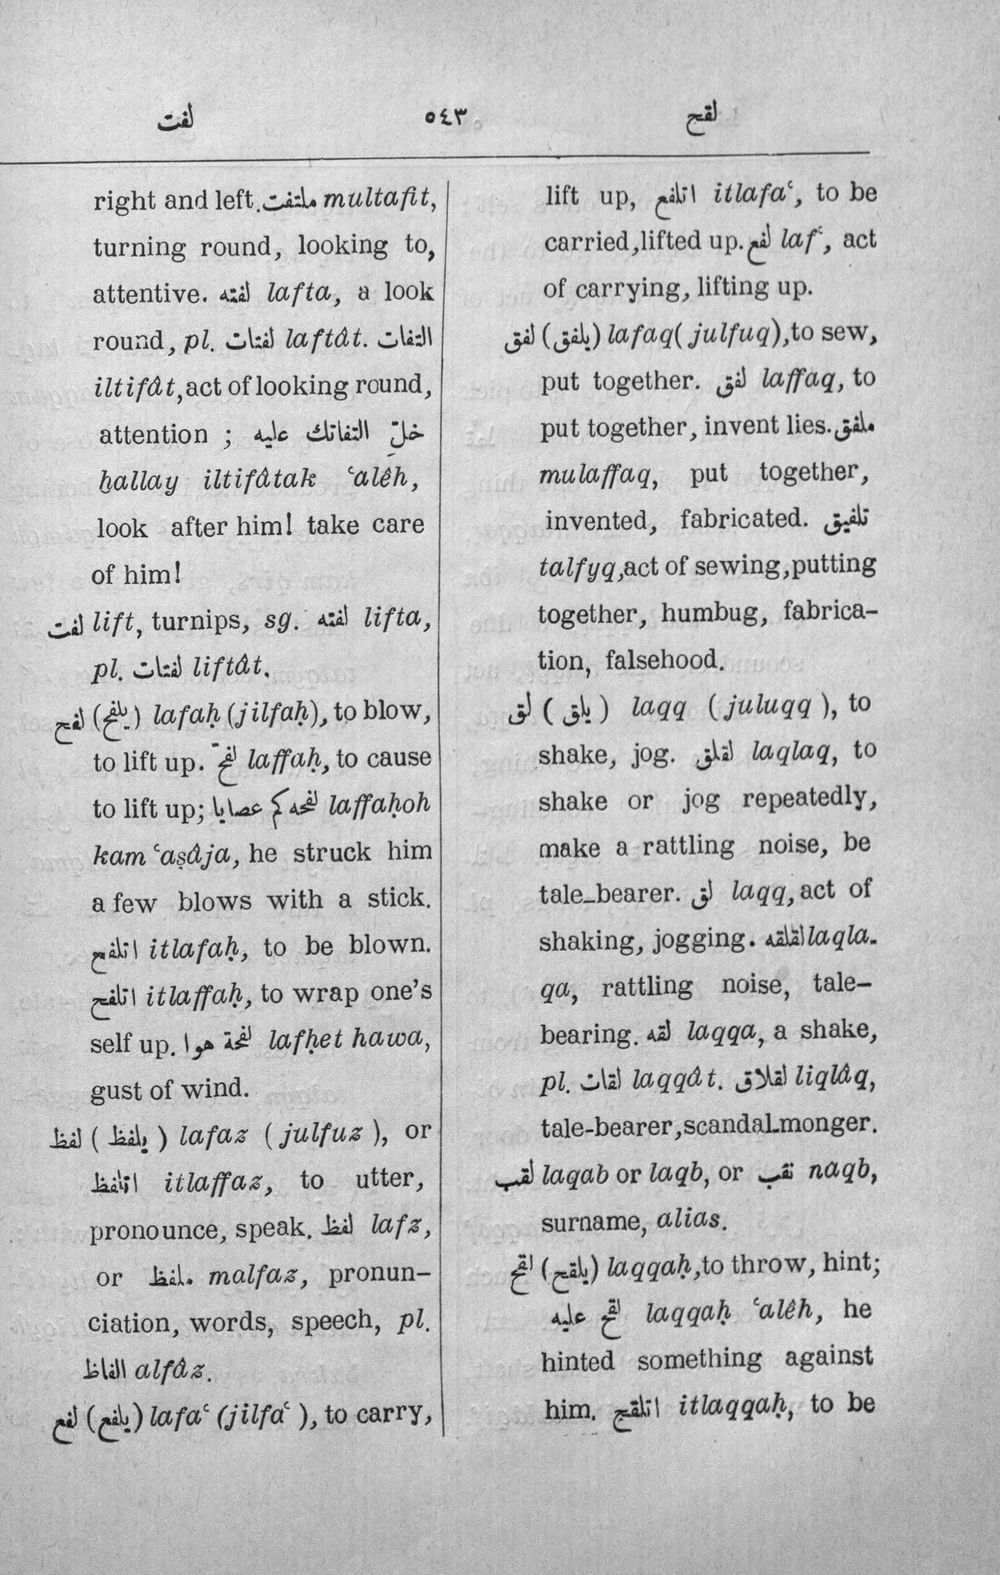 لفت ٥٤٣ لقح
right and left. ملتفت multafit,
turning round, looking to,
attentive. لفته lafta, a look
round, pl. لفتات laftât. التفات
iltifât, act of looking round,
attention ; خلّي التفاتك عليه
ḫallay iltifâtak ʿalêh,
look after him! take care
of him!
لفت lift, turnips, sg. لفته lifta,
pl. لفتات liftât.
لفح (يلفح) lafaḥ (jilfaḥ), to blow,
to lift up. لفّح laffaḥ, to cause
to lift up; لفحه كم عصايا laffaḥoh
kam ʿaṣâja, he struck him
a few blows with a stick.
اتلفح itlafaḥ, to be blown.
اتلفح itlaffaḥ, to wrap one's
self up. لفحة هوا lafḥet hawa,
gust of wind.
لفظ (يلفظ) lafaz (julfuz), or
اتلفظ itlaffaz, to utter,
pronounce, speak. لفظ lafz,
or ملفظ malfaz, pronun-
ciation, words, speech, pl.
الفاظ alfâz.
لفع (يلفع) lafaʿ (jilfaʿ), to carry,
lift up, اتلفع itlafaʿ, to be
carried, lifted up. لفع lafʿ, act
of carrying, lifting up.
لفق (يلفق) lafaq (julfuq), to sew,
put together. لفق laffaq, to
put together, invent lies. ملفق
mulaffaq, put together,
invented, fabricated. تلفيق
talfyq, act of sewing, putting
together, humbug, fabrica-
tion, falsehood.
لق (يلق) laqq (juluqq), to
shake, jog. لقلق laqlaq, to
shake or jog repeatedly,
make a rattling noise, be
tale-bearer. لق laqq, act of
shaking, jogging. لقلقه laqla-
qa, rattling noise, tale-
bearing. لقه laqqa, a shake,
pl. لقات laqqât. لقلاق liqlâq,
tale-bearer, scandal-monger.
لقب laqab or laqb, or نقب naqb,
surname, alias.
لقح (يلقح) laqqaḥ, to throw, hint;
لقح عليه laqqaḥ ʿalêh, he
hinted something against
him. اتلقح itlaqqaḥ, to be